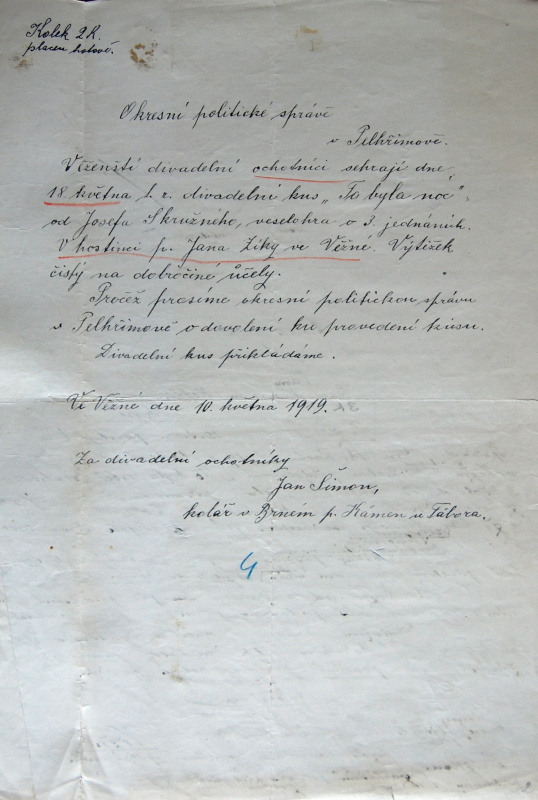 Kolek 2K.
placen hotově.
Okresní politické správě
v Pelhřimově.
Věženští divadelní ochotníci sehrají dne
18 května t. r. divadelní kus „Ta byla noc"
od Josefa Skružného, veselohra o 3. jednáních.
V hostinci p. Jana Ziky ve Věžné. Výtěžek
čistý na dobročiné účely.
Pročež prosíme okresní politickou správu
v Pelhřimově o dovolení ku provedení kusu.
Divadelní kus přikládáme.
Ve Věžné dne 10. května 1919.
Za divadelní ochotníky
Jan Šimon,
kolář v Brném p. Kámen u Tábora.
4